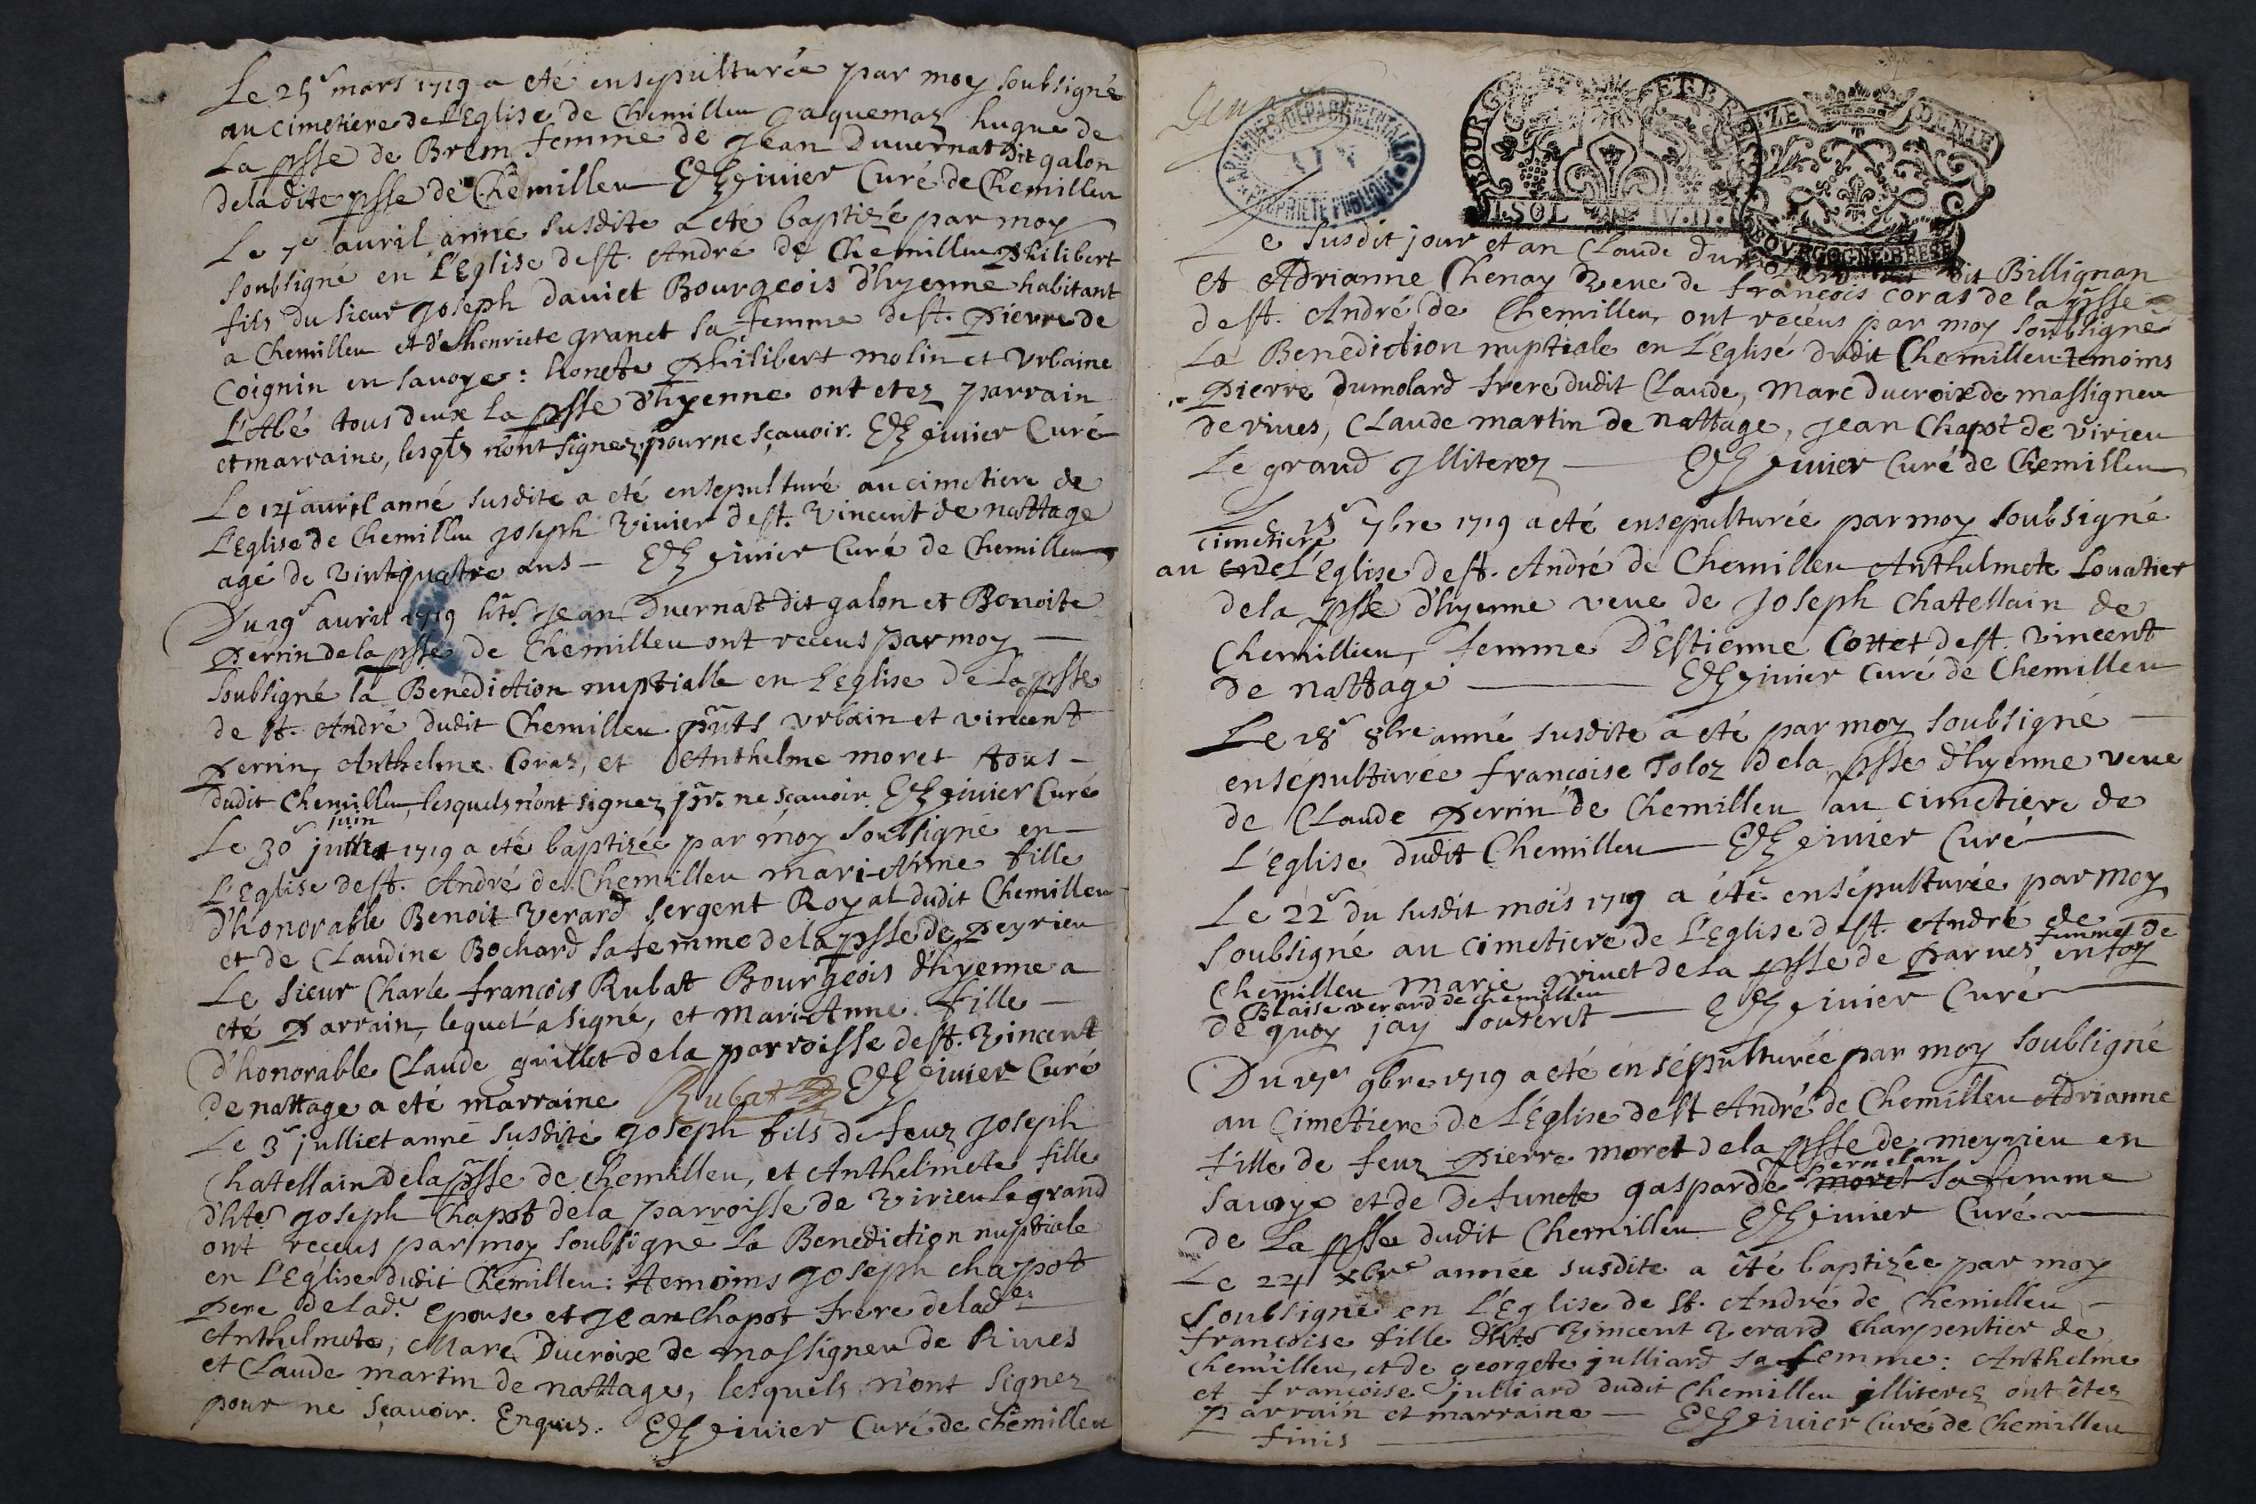 Le 25e mars 1719 a eté ensepulturée par moy soubsigné
au cimetiere de L'Eglise de Chemilleu Jaquemaz hugue de
La psse de Brem femme de Jean Duvernat dit galon
de ladite psse de Chemilleu Curé de Chemilleu
Le 7e avril anné susdite a eté baptizé par moy
soubsigné en L'Eglise de st. André de Chemilleu Philibert
fils du sieur Joseph daviet Bourgeois d'hyenne habitant
a Chemilleu et d'henriete granet sa femme de st. Pierre de
Coignin en savoye: honete Philibert molin et Urbaine
L'Abé tous deux la psse d'hyenne ont etez parrain
et marraine, lesqls n'ont signez pour ne sçavoir. Curé
Le 14e avril anné susdite a eté ensepulturé au cimetiere de
L'Eglise de Chemilleu Joseph Vivier de st. Vincent de nattage
agé de vint quatre ans — Curé de Chemilleu
Du 19e avril 1719 hte. Jean Duvernat dit galon et Benoite
Perrin de la psse de Chemilleu ont receus par moy —
soubsigné la Benediction nuptialle en L'Eglise de La psse
de st. André dudit Chemilleu pnts Urbain et vincent
Perrin, Anthelme Coraz, et Anthelme moret tous —
dudit Chemilleu, lesquels n'ont signez pr. ne sçavoir. Curé
juin
Le 30e 1719 a eté baptizée par moy soubsigné en —
L'Eglise de st. André de Chemilleu mari-Anne fille
d'honorable Benoit Verard sergent Royal dudit Chemilleu
et de Claudine Bochard sa femme de la psse de Peyrieu
Le sieur Charle françois Rubat Bourgeois d'hyenne a
eté Parrain, lequel a signé, et Mari-Anne fille —
d'honorable Claude guillet de la parroisse de st. Vincent
de nattage a eté marraine Rubat Curé
Le 3e julliet anné susdite Joseph fils de feuz Joseph
Chatellain de la psse de Chemilleu, et Anthelmete fille
d'hte Joseph Chapot de la parroisse de Virieu le grand
ont receus par moy soubsigné La Benediction nuptiale
en L'Eglise dudit Chemilleu: temoins Joseph chapot
Pere de lade. epouse et Jean Chapot frere de lade.
Anthelmete, Marc Ducroix de massigneu de Rives
et Claude martin de nattage, lesquels n'ont signez
pour ne sçavoir. Enquis. Curé de chemilleu
ARCHIVES DEPARTEMENTALES
PROPRIETE PUBLIQUE
BOURGOG ET BRES
I.SOL IV.D.
BOURGOGNE BRESSE
Le susdit jour et an Claude dit Billignan
et Adrianne Chenay veue de françois coras de la psse
de st. André de Chemilleu, ont receus par moy soubsigné
La Benediction nuptiale en L'Eglise dudit Chemilleu temoins
Pierre dumolard frere dudit Claude, Marc ducroix de massigneu
de rives, Claude martin de nattage, Jean Chapot de virieu
Le grand Jlliterez — Curé de Chemilleu
Le 15e 7bre 1719 a eté ensepulturée par moy soubsigné
cimetiere
au de L'Eglise de st. André de Chemilleu Anthelmete Lovatier
de la psse d'hyenne veue de Joseph Chatellain de
Chemillieu, femme D'Estienne Cottet de st. vincent
de nattage — Curé de Chemilleu
Le 18e 8bre anné susdite a eté par moy soubsigné —
ensépulturée françoise Toloz de la psse d'hyenne veue
de Claude Perrin de Chemilleu au cimetiere de
L'Eglise dudit Chemilleu — Curé
Le 22e du susdit mois 1719 a eté ensépulturée par moy
soubsigné au cimetiere de L'Eglise de st. André de
Chemilleu marie grivet de la psse de Parves femme de
Blaise verard de chemilleu en foy
de quoy jay souscrit — Curé
Du 17e 9bre 1719 a eté ensépulturée par moy soubsigné
au Cimetiere de L'Eglise de st André de Chemilleu Adrianne
fille de feuz Pierre moret de la psse de meyrieu en
savoye et de defuncte gasparde moret sa femme
de La psse dudit Chemilleu Curé
Le 24 xbre année susdite a eté baptizée par moy
soubsigné en L'Eglise de st. André de Chemilleu —
françoise fille d'hte Vincent Verard Charpentier de
Chemilleu, et de georgete julliard sa femme: Anthelme
et françoise julliard dudit Chemilleu illiterez ont êtez
Parrain et marraine — Curé de Chemilleu
finis